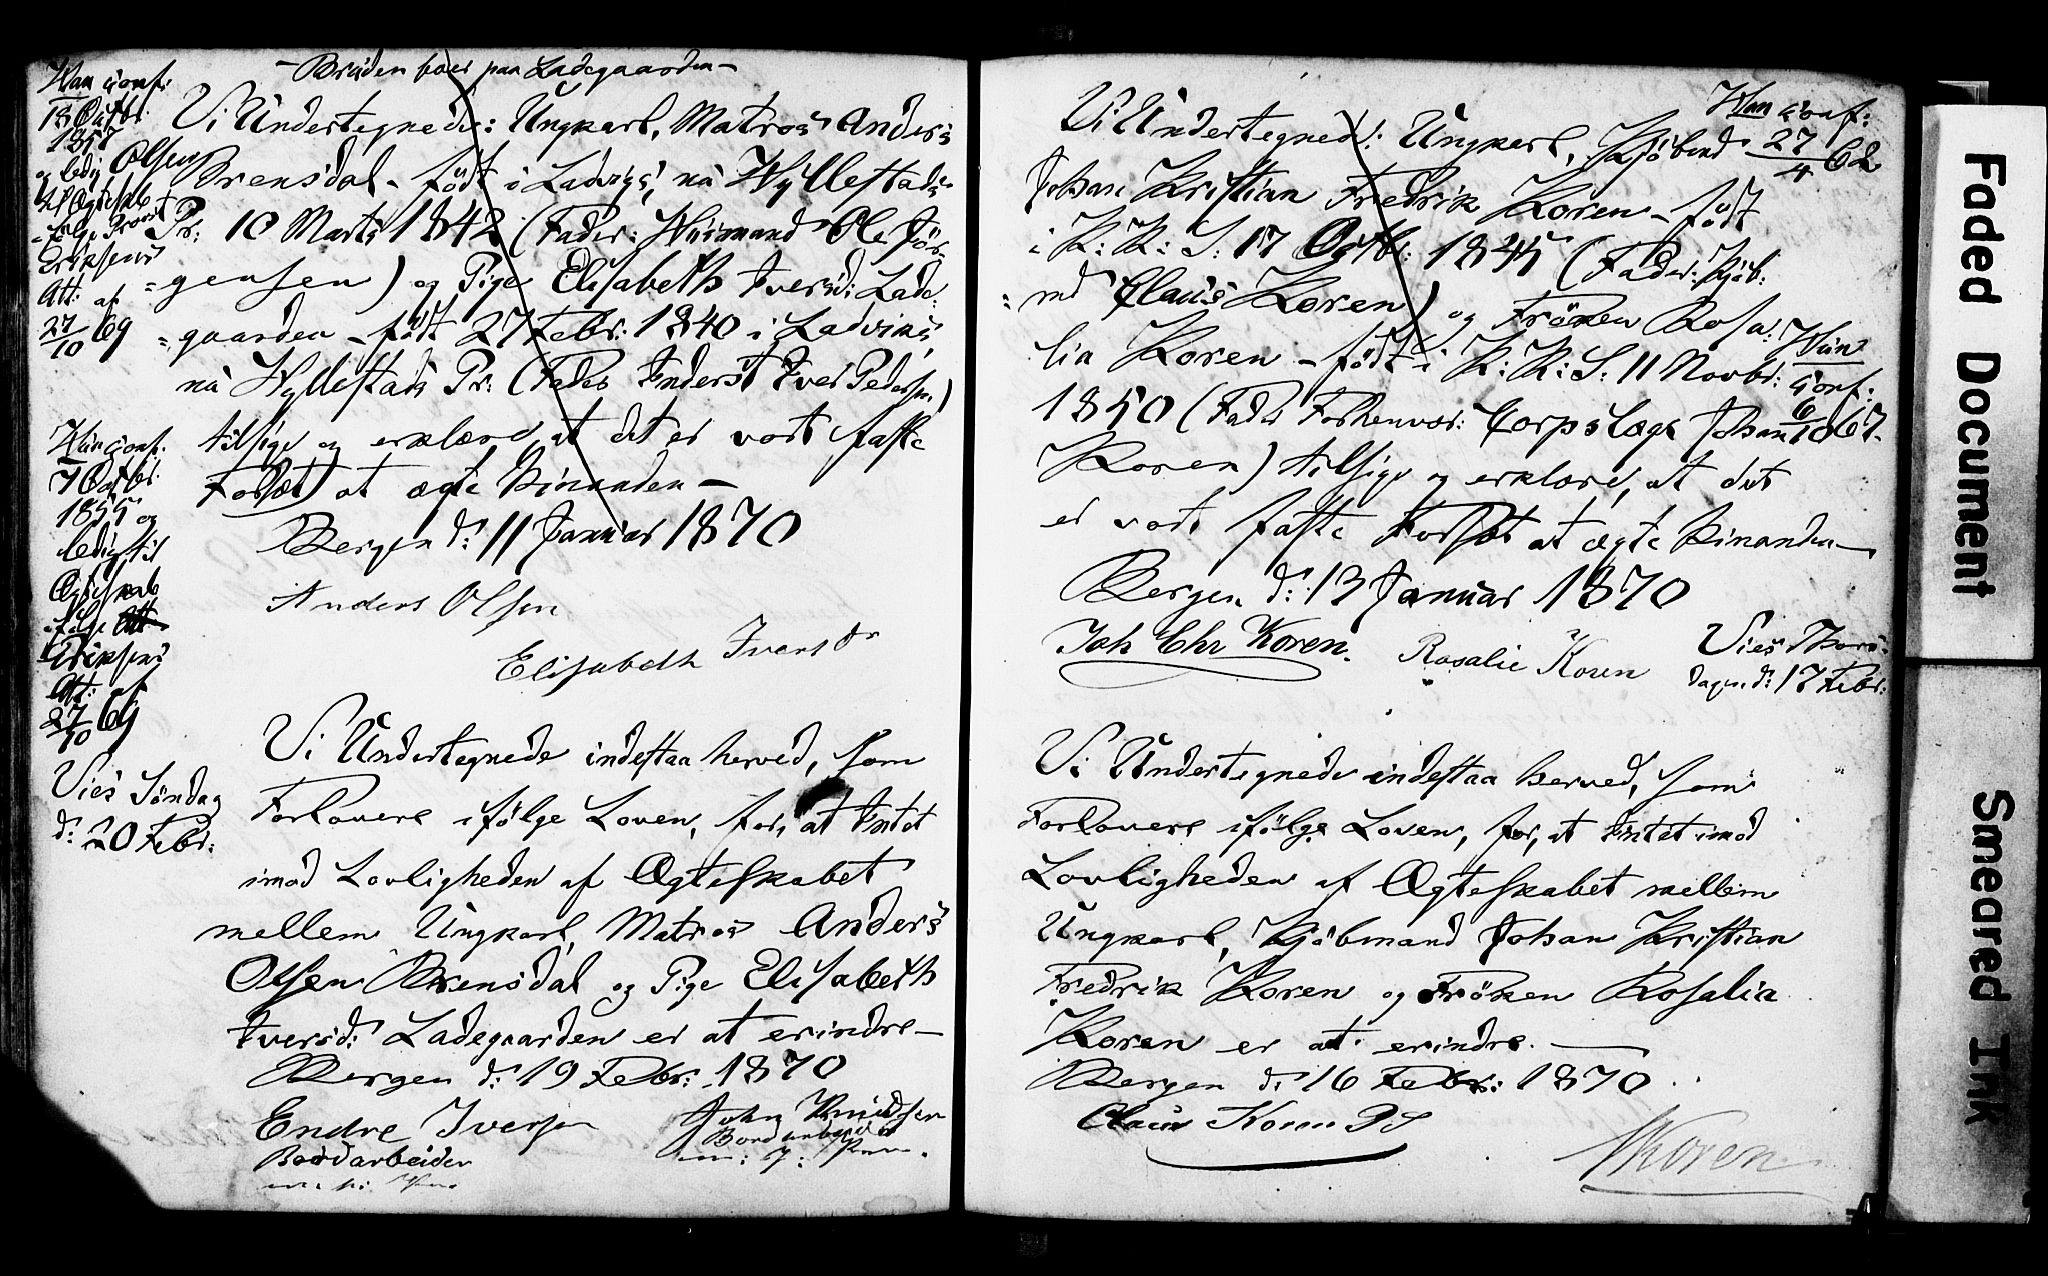 - Bruden boer paa Ladegaarden -
Han conf:
18 Octbr.
1857
og ledig
til Ægteskab
ifølge Provst
Eriksens
Att: af
27/10 69
Vi Undertegnede: Ungkarl, Matros Anders
Olsen Brensdal - født i Ladvigs, nu Hyllestads
Pr: 10 Marts 1842 (Fader: Huusmand Ole Jör-
=gensen) og Pige Elisabeth Iversd: Lade-
=gaarden - født 27 Febr: 1840 i Ladviks,
nu Hyllestads Pr: (Fader Inderst Iver Pedersen)
tilsige og erklære, at det er vort faste
Forsæt at ægte hinanden -
Bergen d: 11 Januar 1870
Anders Olsen
Elisabeth Iversdr
Hun conf:
7 Octbr.
1855 og
ledig til
Ægteskab
ifølge
Eriksens
Att: af
27/10 69
Vies Søndag
d: 20 Febr:
Vi Undertegnede indestaa herved, som
Forlovere ifölge Loven, for, at Intet
imod Lovligheden af Ægteskabet
mellem Ungkarl, Matros Anders
Olsen Brensdal og Pige Elisabeth
Iversd: Ladegaarden er at erindre -
Bergen d: 19 Febr: 1870
Endre Iversen
Bordarbeider
John Knudsen
Bordarbeider
Han conf:
27/4 62
Vi Undertegned: Ungkarl, Kjøbmd
Johan Kristian Fredrik Koren - født
i K: K: S: 17 Octbr: 1845 (Fader: Kjøb-
=md Claus Koren) og Fröken Rosa-
lia Koren - født i K: K: S: 11 Novbr:
1850 (Fader Forhenvær: Corpslæge Johan
Koren) tilsige og erklære, at det
er vort faste Forsæt at ægte hinanden -
Hun
conf:
6/10 67.
Bergen d: 13 Januar 1870
Joh Chr Koren. Rosalie Koren
Vies Thors-
dagen d: 17 Febr:
Vi Undertegnede indestaa herved, som
Forlovere ifölge Loven, for, at Intet imod
Lovligheden af Ægteskabet mellem
Ungkarl, Kjöbmand Johan Kristian
Fredrik Koren og Fröken Rosalia
Koren er at erindre. -
Bergen d: 16 Febr: 1870
Claus Koren
Koren
Faded Document
Smeared Ink